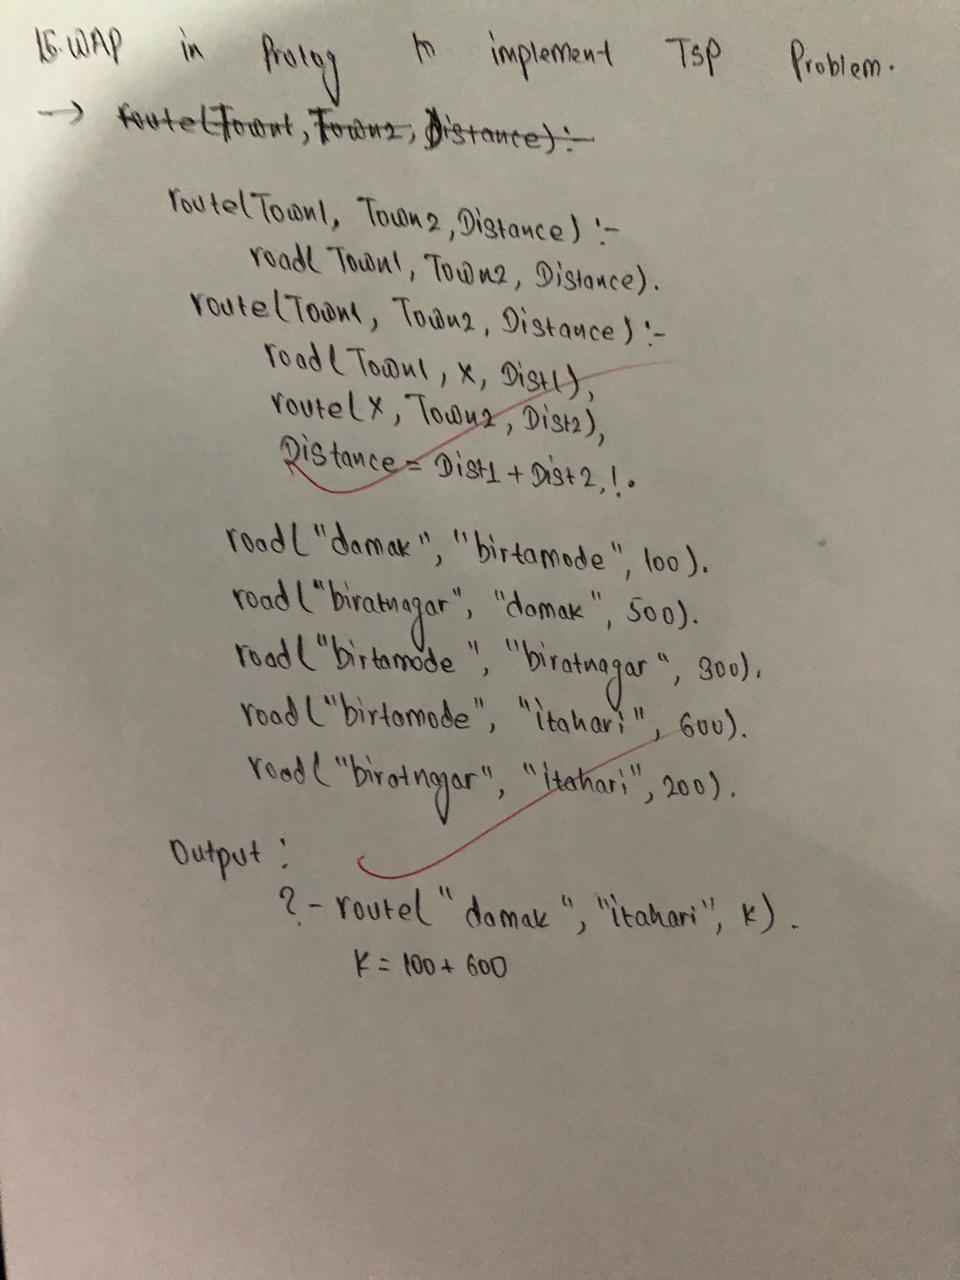 15. WAP in Prolog to implement TSP Problem.
→ route(Town1, Town2, Distance) :-
route(Town1, Town2, Distance) :-
road( Town1, Town2, Distance).
route(Town1, Town2, Distance) :-
road( Town1, X, Dist1),
route(X, Town2, Dist2),
Distance = Dist1 + Dist2, !.
road("damak", "birtamode", 100).
road("biratnagar", "damak", 500).
road("birtamode", "biratnagar", 300).
road("birtamode", "itahari", 600).
road("biratnagar", "itahari", 200).
Output :
?- route("damak", "itahari", K).
K = 100 + 600